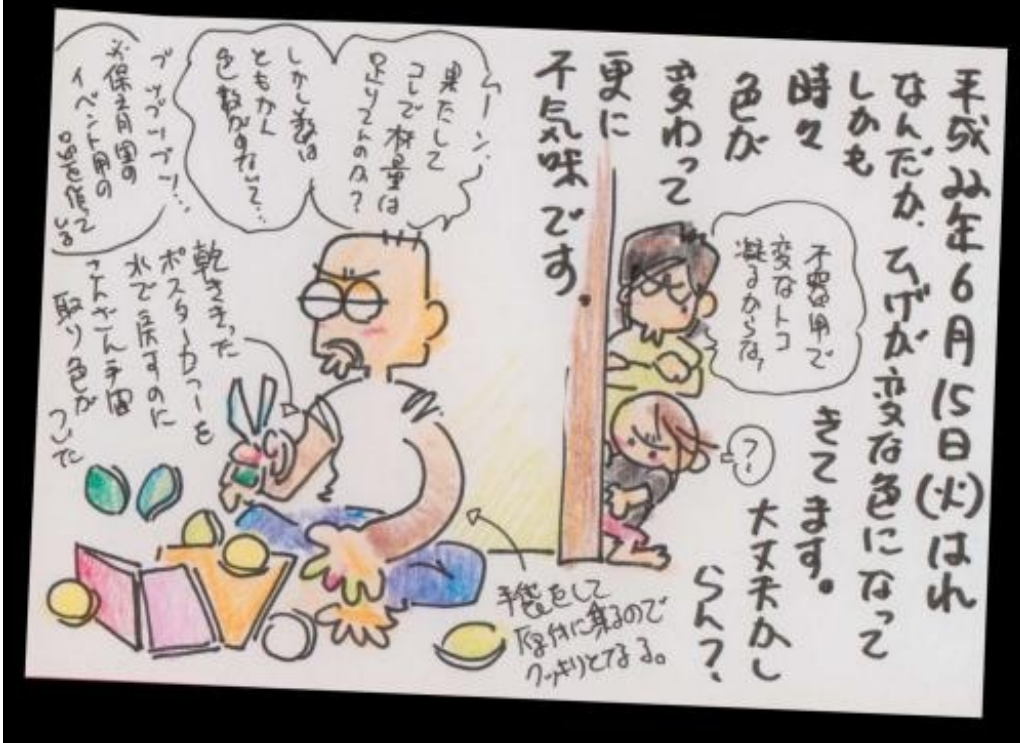 平成22年6月15日(火)はれ
なんだか、ひげが変な色になって
しかも
きてます。
時々
大丈夫かし
色が
らん?
変わって
更に
不気味です。
不器用で
変なトコ
凝るからな,
?
ムーン、
果たして
コレで材量は
足りてんのか?
しかし数は
ともかく
色数がすくないて…
ブツブツブツ…
※保育園の
イベント用の
品を作って
いる
乾ききった
ポスターカラーを
水で戻すのに
さんざん手間
取り色が
ついた
手袋をして
原付に乗るので
クッキリとなる。